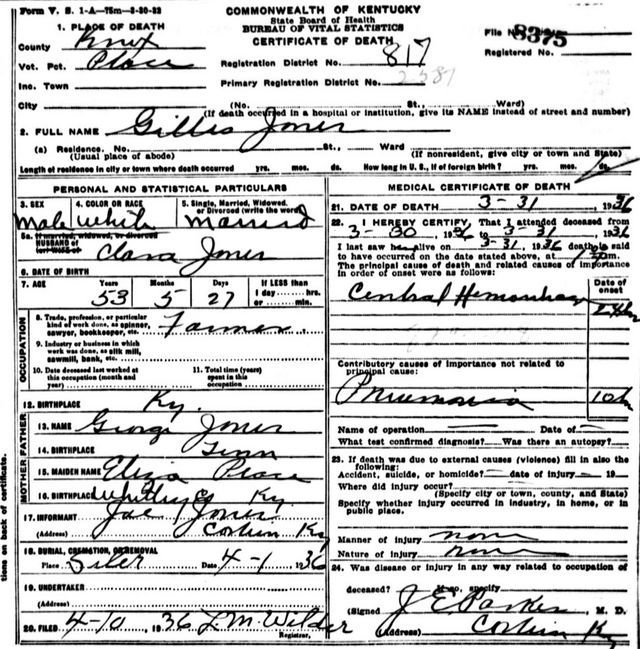 Form V. S. 1-A-75m-3-30-32
COMMONWEALTH OF KENTUCKY
State Board of Health
BUREAU OF VITAL STATISTICS
CERTIFICATE OF DEATH
File No. 8375
Registered No.
1. PLACE OF DEATH
County Knox
Vot. Pct. Place
Registration District No. 817
Inc. Town
Primary Registration District No.
City (No. St., Ward)
(If death occurred in a hospital or institution, give its NAME instead of street and number)
2. FULL NAME Gillis Jones
(a) Residence. No. St., Ward
(Usual place of abode) (If nonresident, give city or town and State)
Length of residence in city or town where death occurred yrs. mos. ds. How long in U. S., if of foreign birth? yrs. mos. ds.
PERSONAL AND STATISTICAL PARTICULARS
3. SEX 4. COLOR OR RACE 5. Single, Married, Widowed, or Divorced (write the word)
Male White Married
5a. If married, widowed, or divorced
HUSBAND of
(or) WIFE of Clara Jones
6. DATE OF BIRTH
7. AGE Years Months Days If LESS than
53 5 27 1 day hrs. or min.
OCCUPATION
8. Trade, profession, or particular kind of work done, as spinner, sawyer, bookkeeper, etc. Farmer
9. Industry or business in which work was done, as silk mill, sawmill, bank, etc.
10. Date deceased last worked at this occupation (month and year)
11. Total time (years) spent in this occupation
12. BIRTHPLACE Ky.
FATHER
13. NAME George Jones
14. BIRTHPLACE Tenn
MOTHER
15. MAIDEN NAME Eliza Place
16. BIRTHPLACE Whitley Co Ky
17. INFORMANT Joe Jones
(Address) Corbin Ky
18. BURIAL, CREMATION, OR REMOVAL
Place Siler Date 4-1 1936
19. UNDERTAKER
(Address)
20. FILED 4-10 1936 L. M. Wilder
Registrar.
MEDICAL CERTIFICATE OF DEATH
21. DATE OF DEATH 3-31 1936
22. I HEREBY CERTIFY, That I attended deceased from
3-30 1936 to 3-31 1936
I last saw h alive on 3-31, 1936 death is said
to have occurred on the date stated above, at m.
The principal cause of death and related causes of importance
in order of onset were as follows:
Date of onset
Hemorrhage
Contributory causes of importance not related to
principal cause:
Pneumonia
Name of operation Date of
What test confirmed diagnosis? Was there an autopsy?
23. If death was due to external causes (violence) fill in also the
following:
Accident, suicide, or homicide? date of injury 19
Where did injury occur?
(Specify city or town, county, and State)
Specify whether injury occurred in industry, in home, or in
public place.
Manner of injury none
Nature of injury none
24. Was disease or injury in any way related to occupation of
deceased? If so, specify
(Signed) J. E. Parker, M. D.
(Address) Corbin Ky
tions on back of certificate.